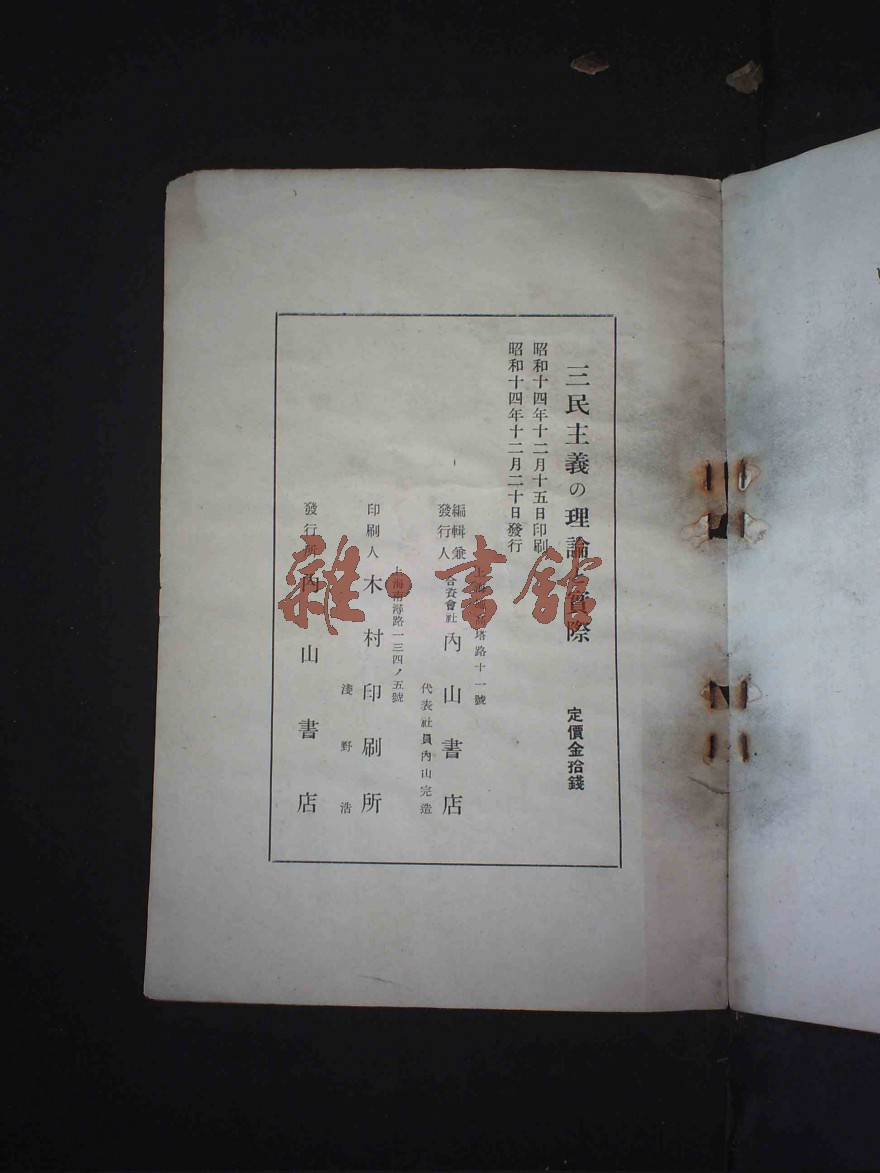 三民主義の理論と實際
定價金拾錢
昭和十四年十二月十五日印刷
昭和十四年十二月二十日發行
上海
塔路十一號
編輯兼
發行人
合資會社 內山書店
代表社員 內山完造
上海南潯路一三四ノ五號
印刷人 木村印刷所
淺野浩
發行所 內山書店
雜·書館